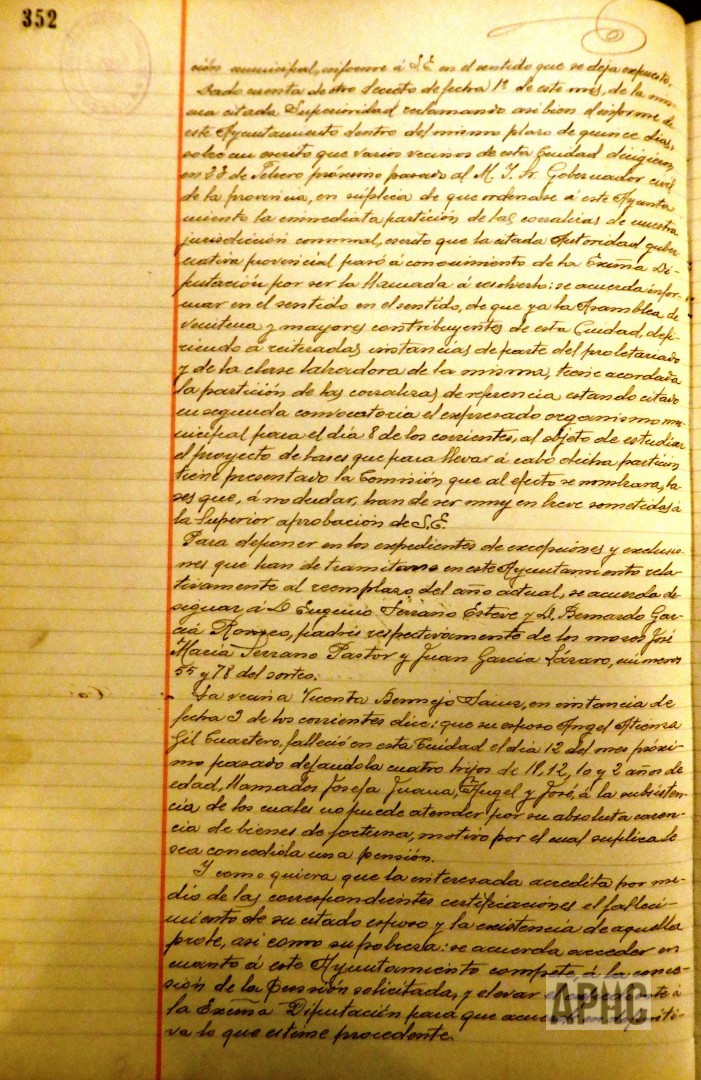 352
sión municipal, informe á S.E. en el sentido que se deja expuesto.
Dado cuenta de otro decreto de fecha 1º de este mes, de la mis-
ma citada Superioridad reclamando asi bien el informe de
este Ayuntamiento dentro del mismo plazo de quince dias,
sobre un escrito que varios vecinos de esta Ciudad dirigieron
en 28 de Febrero próximo pasado al M. I. Sr. Gobernador civil
de la provincia, en súplica de que ordenase á este Ayunta
miento la inmediata partición de las corralizas de nuestra
jurisdicción comunal, escrito que la citada Autoridad guber
nativa provincial pasó á conocimiento de la Exma Di-
putación por ser la llamada á resolverlo: se acuerda infor-
mar en el sentido en el sentido, de que ya la Asamblea de
Veintena y mayores contribuyentes de esta Ciudad, defi-
riendo á reiteradas instancias de parte del proletariado
y de la clase labradora de la misma, tiene acordada
la partición de las corralizas de referencia estando citado
en segunda convocatoria el expresado organismo mu-
nicipal para el dia 8 de los corrientes, al objeto de estudiar
el proyecto de bases que para llevar á cabo dicha partición
tiene presentado la Comisión que al efecto se nombrara, ba
ses que, á no dudar, han de ser muy en breve sometidas á
la Superior aprobación de S.E.
Para deponer en los expedientes de excepciones y exclusio-
nes que han de tramitarse en este Ayuntamiento rela-
tivamente al reemplazo del año actual, se acuerda de
signar, á D. Eugenio Serrano Esteve y D. Bernardo Gar-
cia Romeo, padres respectivamente de los mozos José
Maria Serrano Pastor y Juan Garcia Lázaro, números
55 y 78 del sorteo.
La vecina Vicenta Bermejo Sainz, en instancia de
fecha 3 de los corrientes dice: que su esposo Angel Atienza
Gil Cuartero, falleció en esta Ciudad el dia 12 del mes próxi-
mo pasado dejandola cuatro hijos de 18, 12, 10 y 2 años de
edad, llamados Josefa Juana, Angel y José, á la subsisten-
cia de los cuales no puede atender por su absoluta caren-
cia de bienes de fortuna, motivo por el cual suplica le
sea concedida una pensión.
Y como quiera que la interesada acredita por me-
dio de las correspondientes certificaciones el falleci-
miento de su citado esposo y la existencia de aquella
prole, asi como su pobreza: se acuerda acceder en
cuanto á este Ayuntamiento compete, á la conce-
sión de la pensión solicitada, y elevar á
la Exma Diputación para que acuerde en definiti-
va lo que estime procedente.
APHC